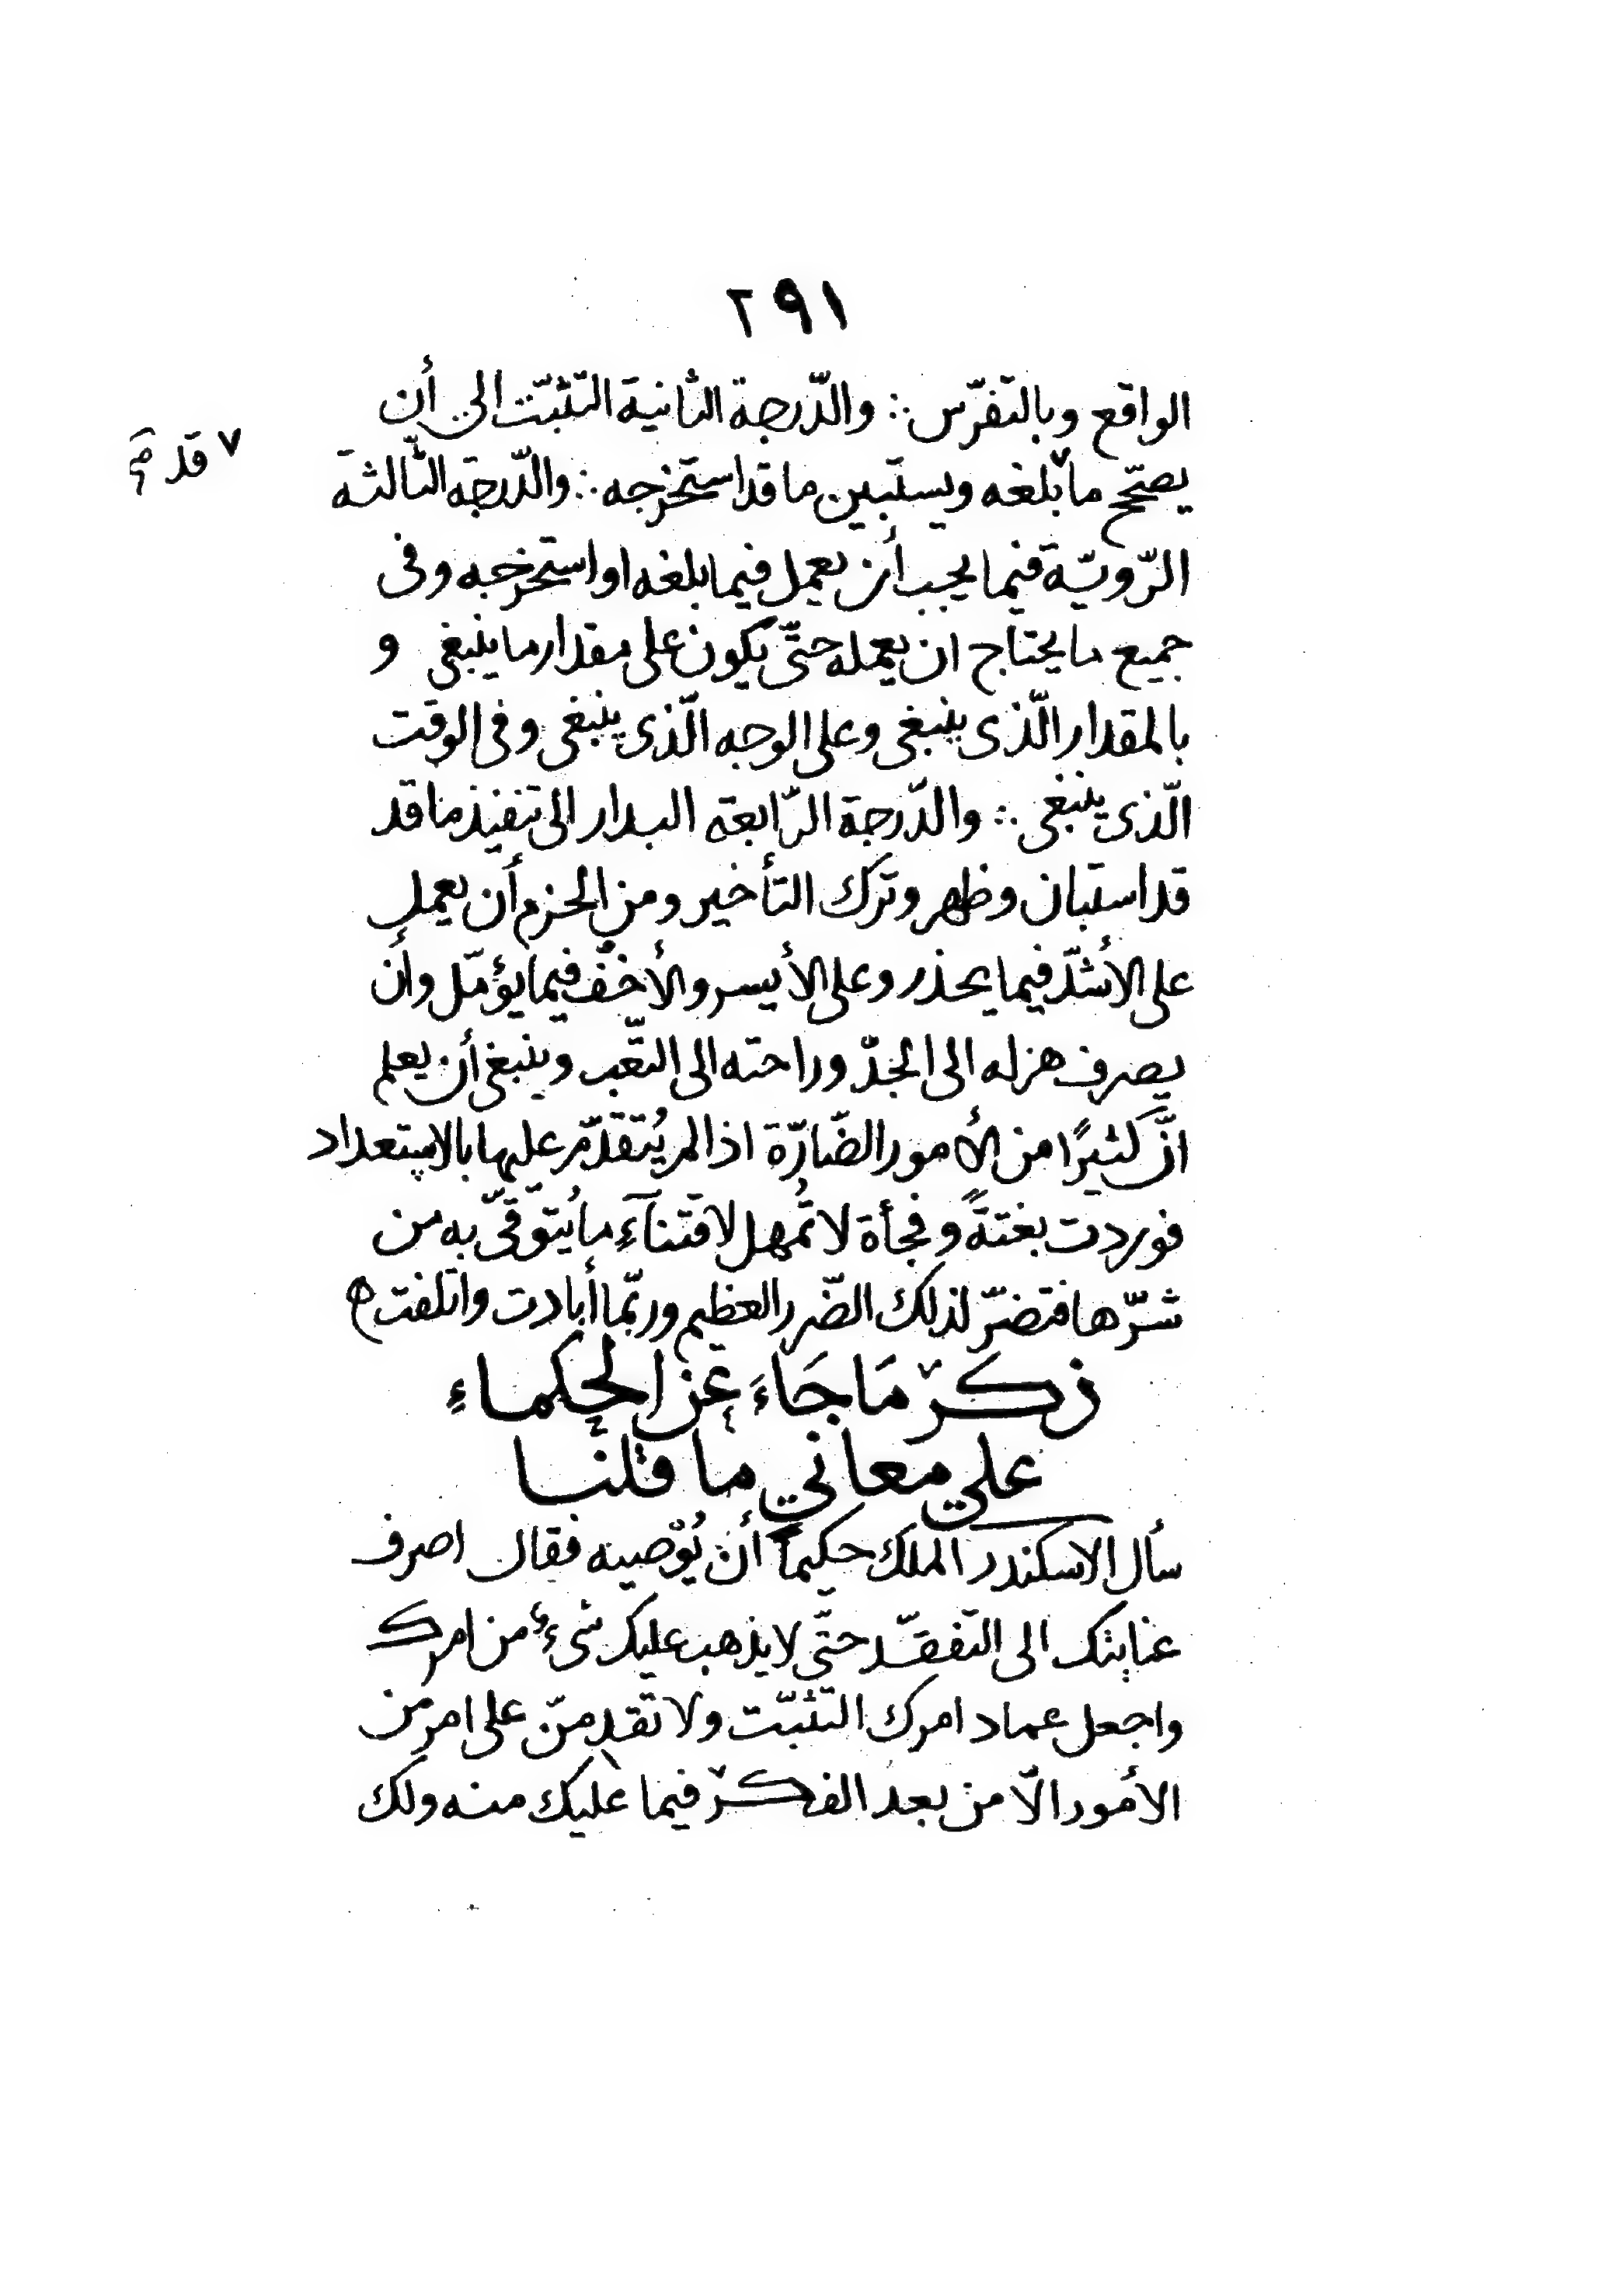 ٢٩١
الواقع وبالتفرّس ∴ والدّرجة الثانية التثبّت الى أن
٧ قد
يصحّح ما٧بلغه ويستبين ما قد استخرجه ∴ والدّرجة الثّالثة
الرّويّة فيما يجب أن يعمل فيما بلغه او استخرجه وفى
جميع ما يحتاج ان يعمله حتّى يكون على مقدار ما ينبغى و
بالمقدار الّذى ينبغى وعلى الوجه الّذى ينبغى وفى الوقت
الّذى ينبغى ∴ والدّرجة الرّابعة البدار الى تنفيذ ما قد
قد استبان وظهر وترك التأخير ومن الحزم أن يعمل
على الأشدّ فيما يحذر وعلى الأيسر والأخفّ فيما يؤمّل وأن
يصرف هزله الى الجدّ وراحته الى التّعب وينبغى أن يعلم
انّ كثيرًا من الأمور الضّارّة اذا لم يُتقدّم عليها بالاستعداد
فوردت بغتةً وفجأة لا تُمهل لاقتنآءِ ما يُتوقّى به من
شرّها فتضرّ لذلك الضّرر العظيم وربّما أبادت واتلفت ه
ذكرُ مَا جَاءَ عن الحكماءِ
علي معاني ما قلنا
سأل الاسكندر الملك حكيماً أن يُوْصيه فقال اصرف
عنايتك الى التّفقّد حتّى لا يذهب عليك شىءٌ من امرك
واجعل عماد امرك التثبّت ولا تقدمنّ على امر من
الأمور الّا من بعد الفكرْ فيما عليك منه ولك